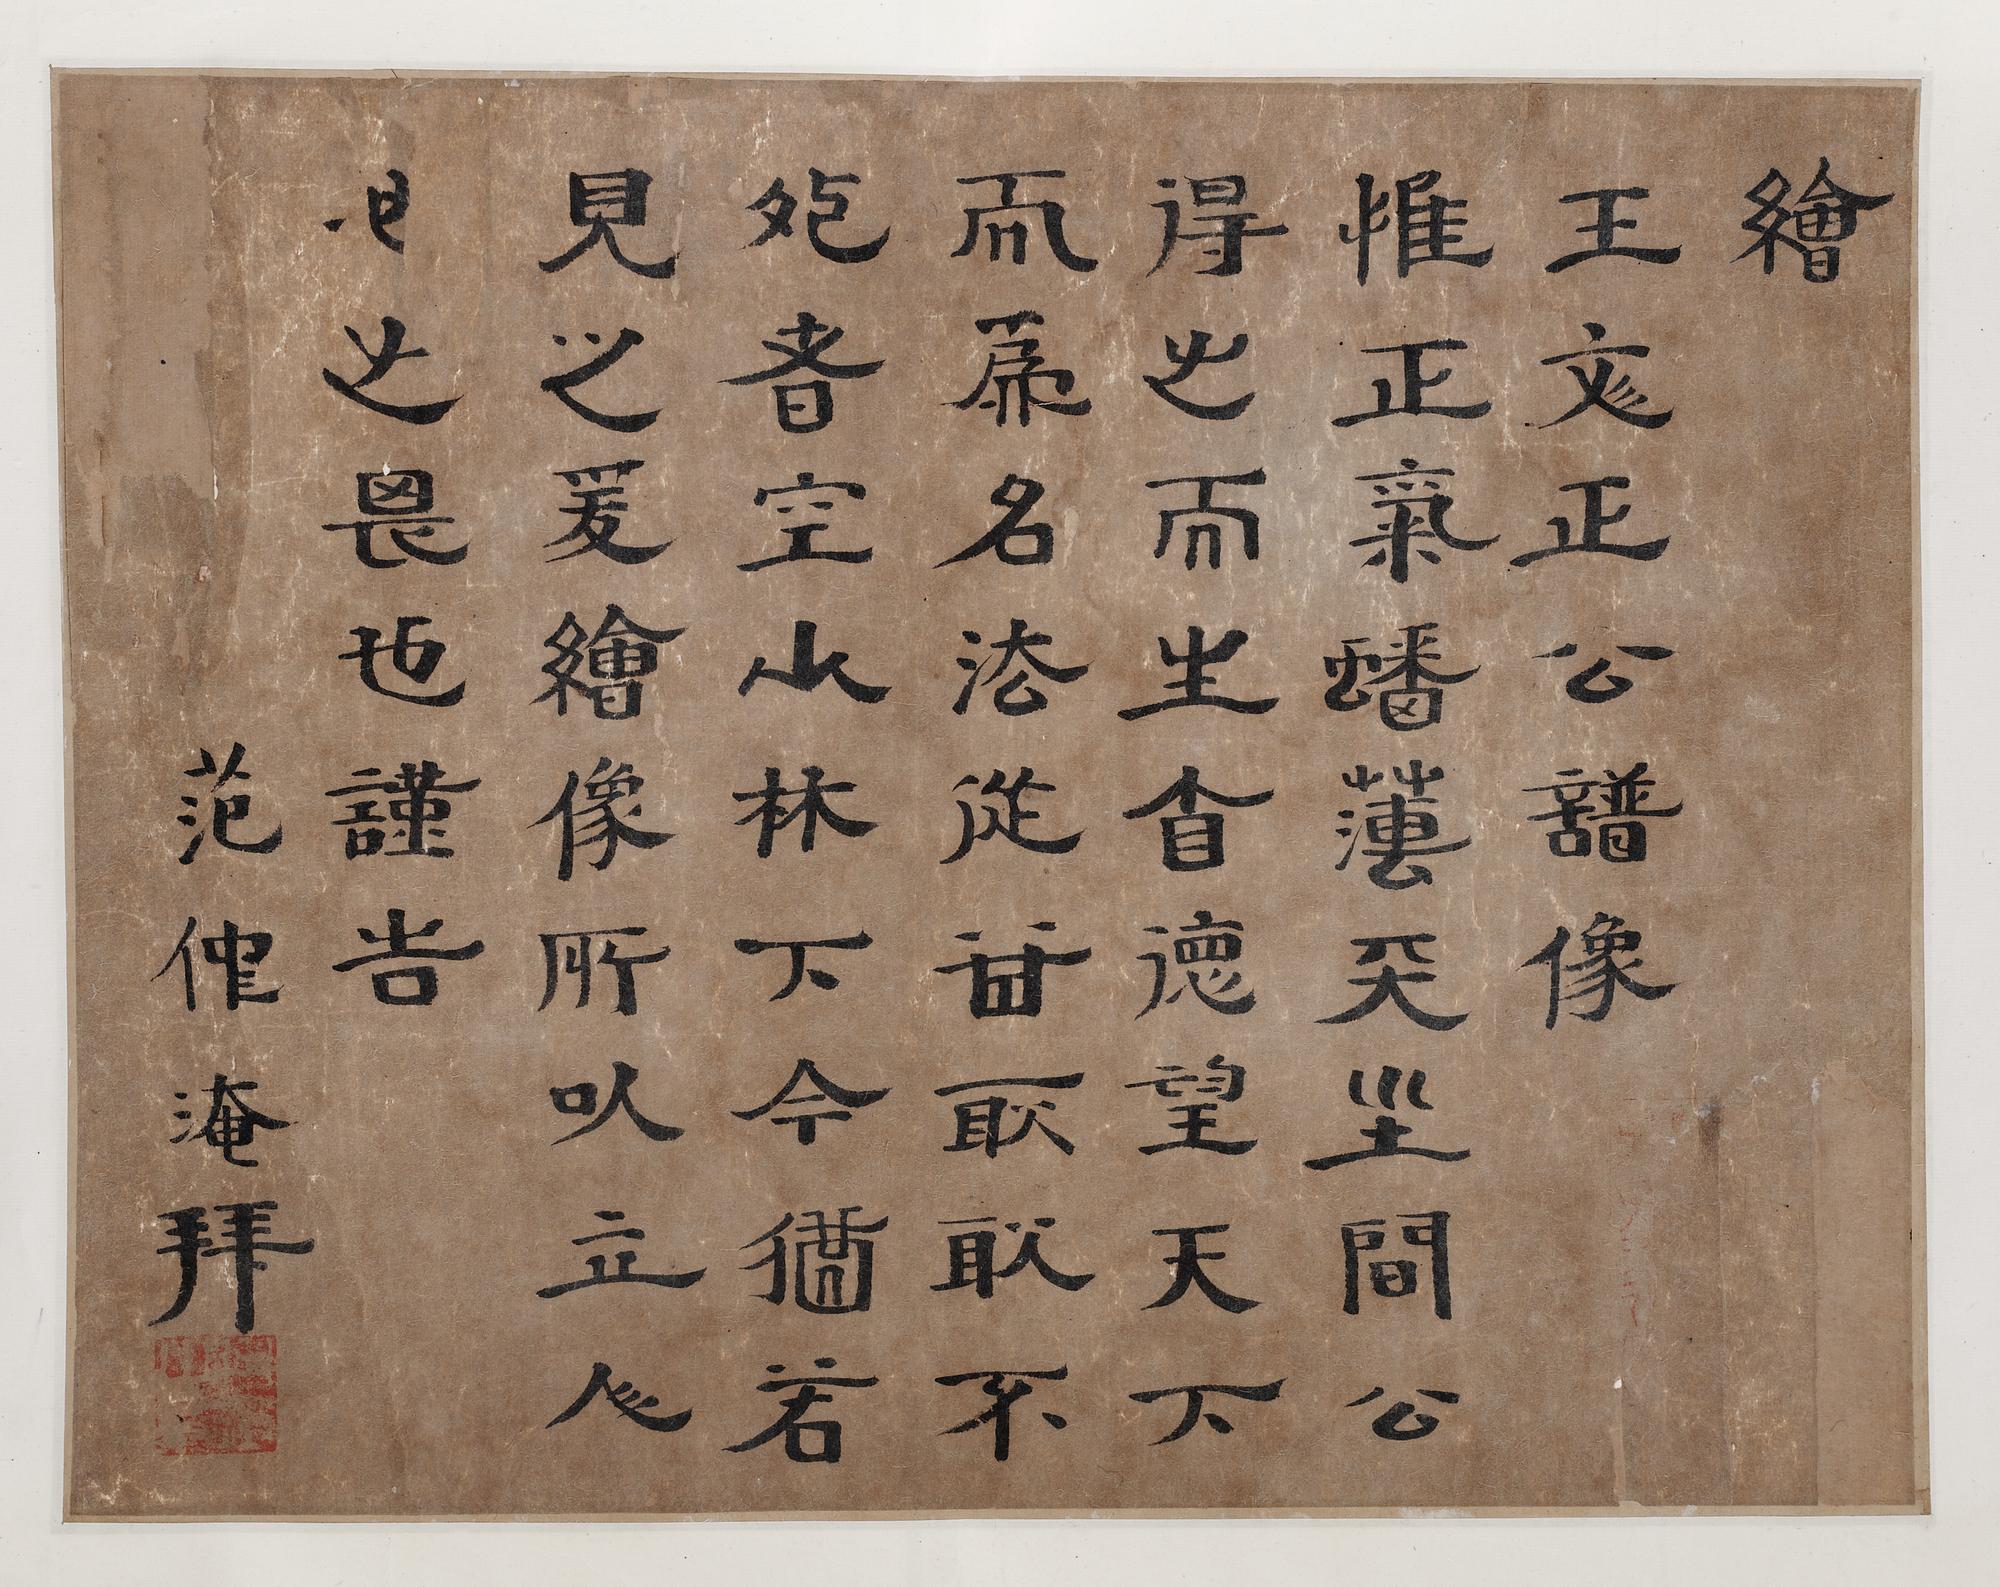 繪
王文正公譜像
惟正氣蟠天間公
得之而生德望天下
而為名法從昔耿耿不
死者空山林下今猶若
見之爰繪像所以立人
之畏也謹告
范仲淹拜